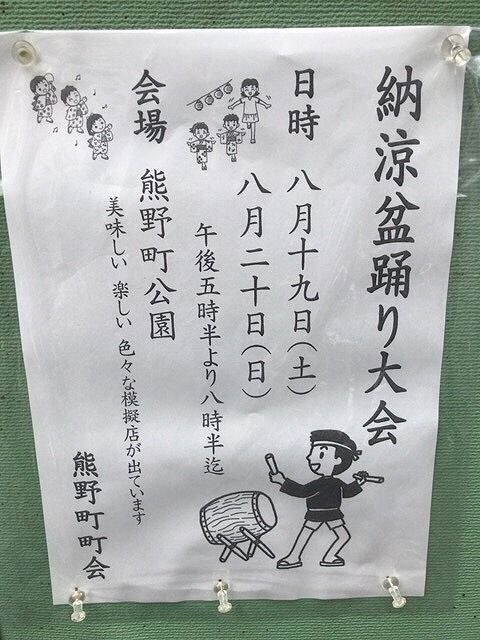 納涼盆踊り大会
日時 八月十九日(土)
八月二十日(日)
午後五時半より八時半迄
会場 熊野町公園
美味しい 楽しい 色々な模擬店が出ています
熊野町町会